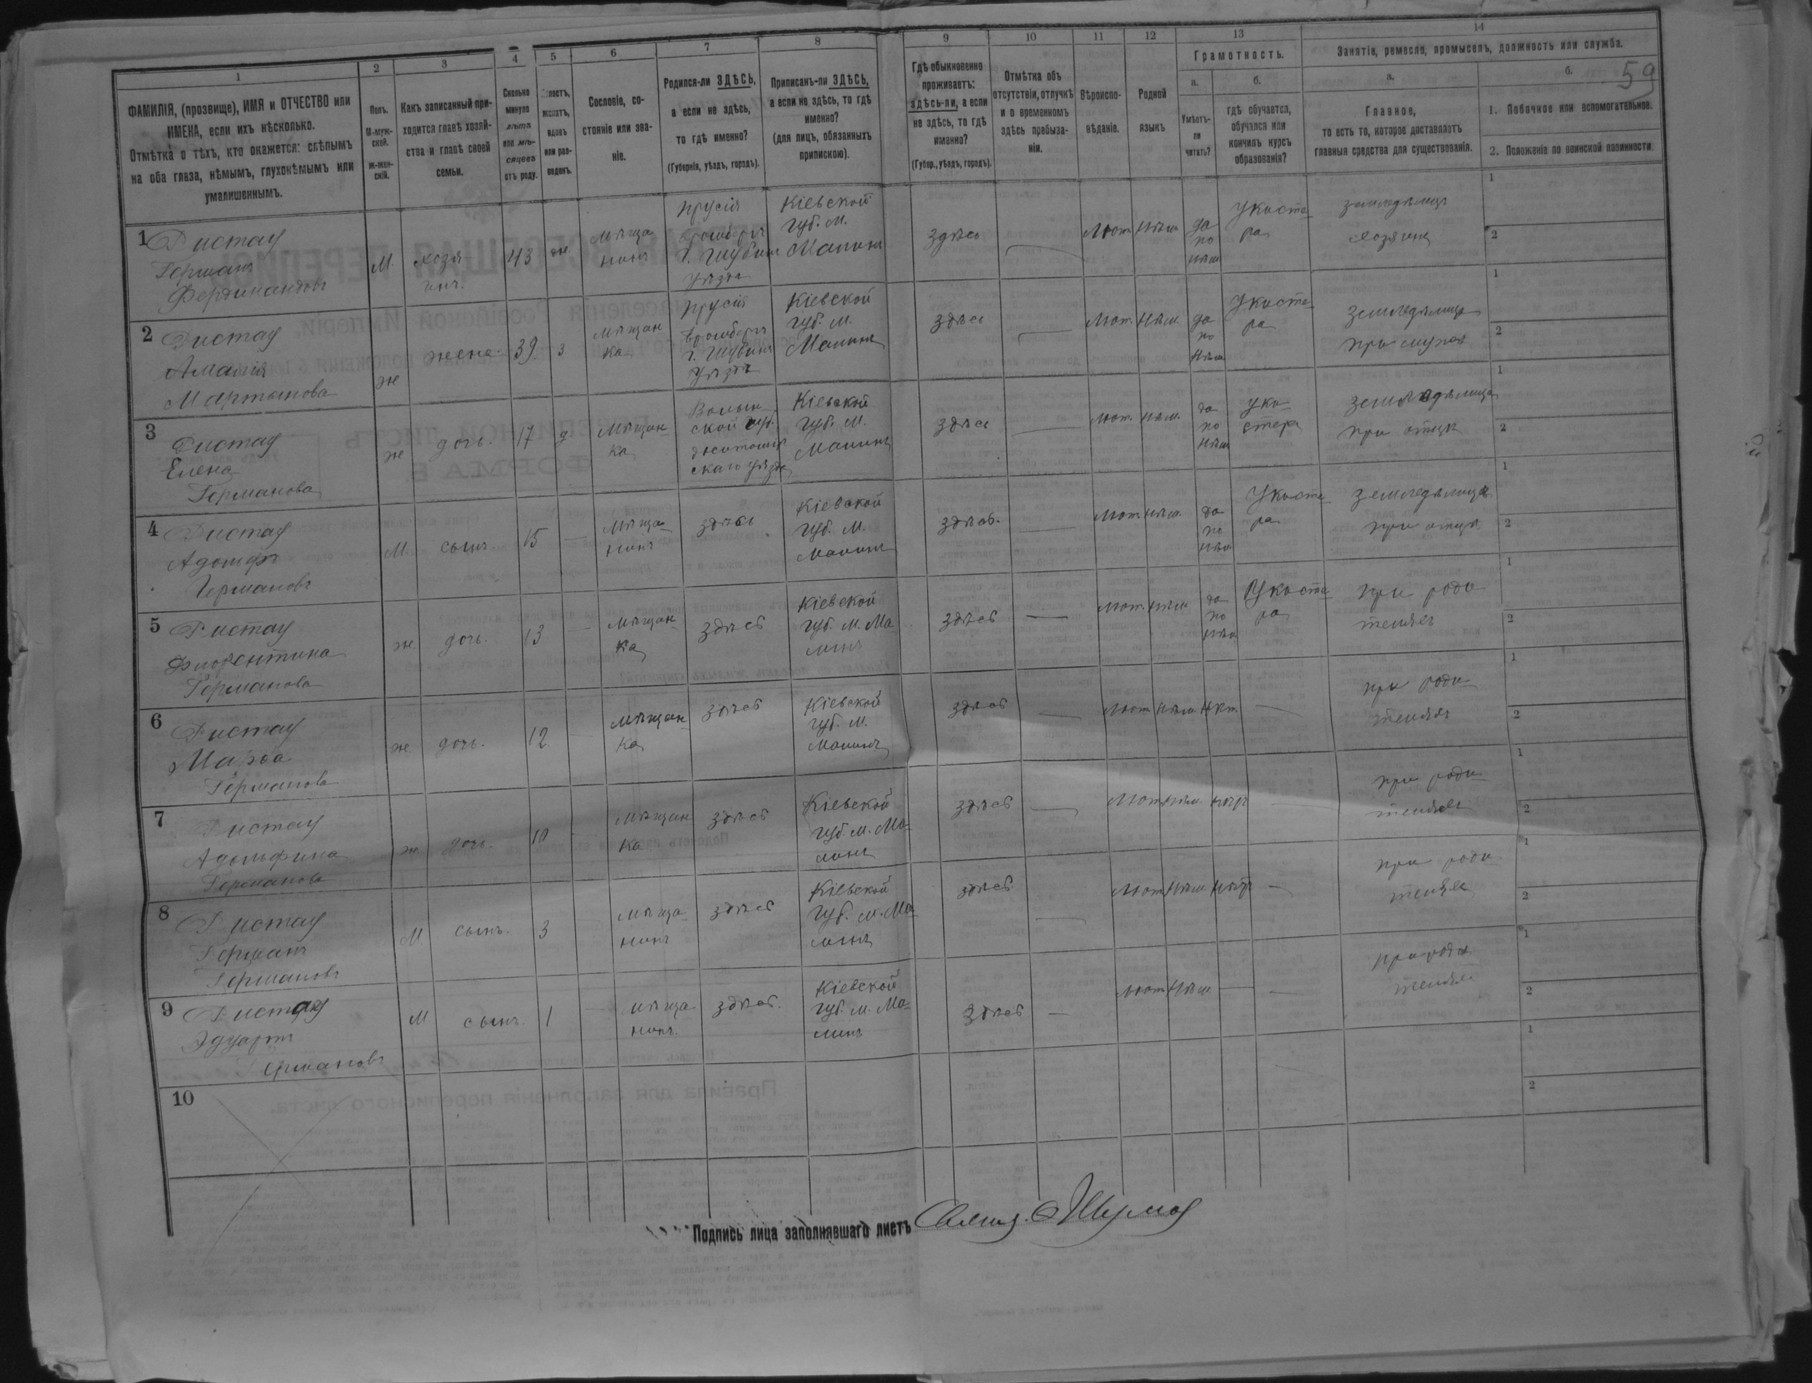 59
1
2
3
4
5
6
7
8
9
10
11
12
13
14
ФАМИЛІЯ, (прозвище), ИМЯ и ОТЧЕСТВО или
ИМЕНА, если ихъ нѣсколько.
Отмѣтка о тѣхъ, кто окажется: слѣпымъ
на оба глаза, нѣмымъ, глухонѣмымъ или
умалишеннымъ.
Полъ.
М-муж-
ской.
Ж-жен-
скій.
Какъ записанный при-
ходится главѣ хозяй-
ства и главѣ своей
семьи.
Сколько
минуло
лѣтъ
или мѣ-
сяцевъ
отъ роду.
Сословіе, со-
стояніе или зва-
ніе.
Родился-ли ЗДѢСЬ,
а если не здѣсь,
то гдѣ именно?
(Губернія, уѣздъ, городъ).
Приписанъ-ли ЗДѢСЬ,
а если не здѣсь, то гдѣ
именно?
(для лицъ, обязанныхъ
припискою).
Гдѣ обыкновенно
проживаетъ:
здѣсь-ли, а если
не здѣсь, то гдѣ
именно?
(Губер., уѣздъ, городъ).
Отмѣтка объ
отсутствіи, отлучкѣ
и о временномъ
здѣсь пребыва-
ніи.
Вѣроиспо-
вѣданіе.
Родной
языкъ
Грамотность.
а.
Умѣетъ-
ли
читать?
б.
гдѣ обучается,
обучался или
кончилъ курсъ
образованія?
Занятіе, ремесло, промыселъ, должность или служба.
а.
Главное,
то есть то, которое доставляетъ
главныя средства для существованія.
б.
1. Побочное или вспомогательное.
2. Положеніе по воинской повинности.
1 Дистау
Германъ
Фердинандовъ
М.
хозя-
инъ
43
ж
Мѣща-
нинъ
Прусія
уѣзда
Кіевской
губ. М.
Малинъ
здѣсь
Лют
Нѣм
да
по
нѣм
У кисте-
ра
земледѣлецъ
хозяинъ
1
2
2 Дистау
Амалія
Мартынова
ж
жена
39
з
Мѣщан-
ка
Кіевской
губ. М.
Малинъ
здѣсь
Лют
Нѣм
да
по
нѣм
У кисте-
ра
земледѣлица
при мужѣ
1
2
3 Дистау
Елена
Германова
ж
дочь
17
д
Мѣщан-
ка
Волын-
ской губ.
Житомир-
скаго уѣзда
Кіевской
губ. М.
Малинъ
здѣсь
Лют
Нѣм
да
по
нѣм
У ки-
стера
земледѣлица
при отцѣ
1
2
4 Дистау
Адольфъ
Германовъ
М.
сынъ
15
Мѣща-
нинъ
здѣсь
Кіевской
губ. М.
Малинъ
здѣсь
Лют
Нѣм
да
по
нѣм
У кисте-
ра
земледѣлецъ
при отцѣ
1
2
5 Дистау
Флорентина
Германова
ж
дочь
13
Мѣщан-
ка
здѣсь
Кіевской
губ. М. Ма-
линъ
здѣсь
Лют
Нѣм
да
по
нѣм
У кисте-
ра
при роди-
теляхъ
1
2
6 Дистау
Марѳа
Германова
ж
дочь
12
Мѣщан-
ка
здѣсь
Кіевской
губ. М.
Малинъ
здѣсь
Лют
Нѣм
Нѣт
при роди-
теляхъ
1
2
7 Дистау
Адольфина
Германова
ж
дочь
10
Мѣщан-
ка
здѣсь
Кіевской
губ. М. Ма-
линъ
здѣсь
Лют
Нѣм
Нѣтъ
при роди-
теляхъ
1
2
8 Дистау
Германъ
Германовъ
М
сынъ
3
Мѣща-
нинъ
здѣсь
Кіевской
губ. М. Ма-
линъ
здѣсь
Лют
Нѣм
Нѣтъ
при роди-
теляхъ
1
2
9 Дистау
Эдуардъ
Германовъ
М
сынъ
1
Мѣща-
нинъ
здѣсь
Кіевской
губ. М. Ма-
линъ
здѣсь
Лют
Нѣм
при роди-
теляхъ
1
2
10
1
2
Подпись лица заполнявшаго листъ